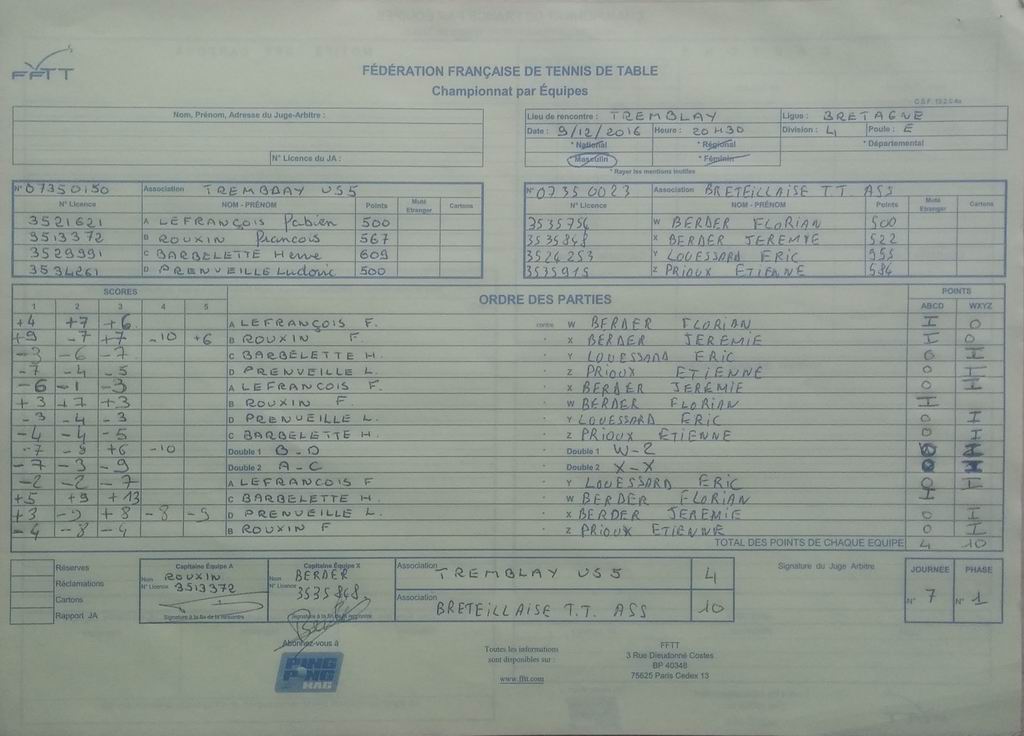 FFTT
FÉDÉRATION FRANÇAISE DE TENNIS DE TABLE
Championnat par Équipes
C.S.F. 13.2.C.4a
Nom, Prénom, Adresse du Juge-Arbitre :
N° Licence du JA :
Lieu de rencontre : TREMBLAY Ligue : BRETAGNE
Date : 9/12/2016 Heure : 20H30 Division : 4 Poule : E
* National * Régional * Départemental
Masculin * Féminin
* Rayer les mentions inutiles
N° 07350150 Association TREMBLAY US5
N° Licence NOM - PRÉNOM Points Muté Etranger Cartons
3521621 A LEFRANÇOIS Fabien 500
3513372 B ROUXIN François 567
3529991 C BARBELETTE Herve 609
3534261 D PRENVEILLE Ludovic 500
N° 07350023 Association BRETEILLAISE T.T. ASS
N° Licence NOM - PRÉNOM Points Muté Etranger Cartons
3535756 W BERDER FLORIAN 500
3535848 X BERDER JEREMYE 522
3524253 Y LOUESSARD ERIC 955
3535915 Z PRIOUX ETIENNE 584
SCORES ORDRE DES PARTIES POINTS
1 2 3 4 5 ABCD WXYZ
+4 +7 +6 A LEFRANÇOIS F. contre W BERDER FLORIAN I O
+9 -7 +7 -10 +6 B ROUXIN F. X BERDER JEREMIE I O
-3 -6 -7 C BARBELETTE H. Y LOUESSARD ERIC O I
-7 -4 -5 D PRENVEILLE L. Z PRIOUX ETIENNE O I
-6 -1 -3 A LEFRANCOIS F. X BERDER JEREMIE O I
+3 +7 +3 B ROUXIN F. W BERDER FLORIAN I
-3 -4 -3 D PRENVEILLE L. Y LOUESSARD ERIC O I
-4 -4 -5 C BARBELETTE H. Z PRIOUX ETIENNE O I
-7 -9 +6 -10 Double 1 B-D Double 1 W-Z O I
-7 -3 -9 Double 2 A-C Double 2 X-X O I
-2 -2 -7 A LEFRANCOIS F Y LOUESSARD ERIC O I
+5 +9 +13 C BARBELETTE H. W BERDER FLORIAN I
+3 -9 +8 -8 -9 D PRENVEILLE L. X BERDER JEREMIE O I
-4 -8 -4 B ROUXIN F Z PRIOUX ETIENNE O I
TOTAL DES POINTS DE CHAQUE EQUIPE 4 10
Réserves
Réclamations
Cartons
Rapport JA
Capitaine Équipe A
Nom ROUXIN
N° Licence 3513372
Signature à la fin de la rencontre
Capitaine Équipe X
Nom BERDER
N° Licence 3535848
Signature à la fin de la rencontre
Association TREMBLAY US5 4
Association BRETEILLAISE T.T. ASS 10
Signature du Juge Arbitre
JOURNEE PHASE
N° 7 N° 1
Abonnez-vous à
PING PONG MAG
Toutes les informations
sont disponibles sur :
www.fftt.com
FFTT
3 Rue Dieudonné Costes
BP 40348
75625 Paris Cedex 13